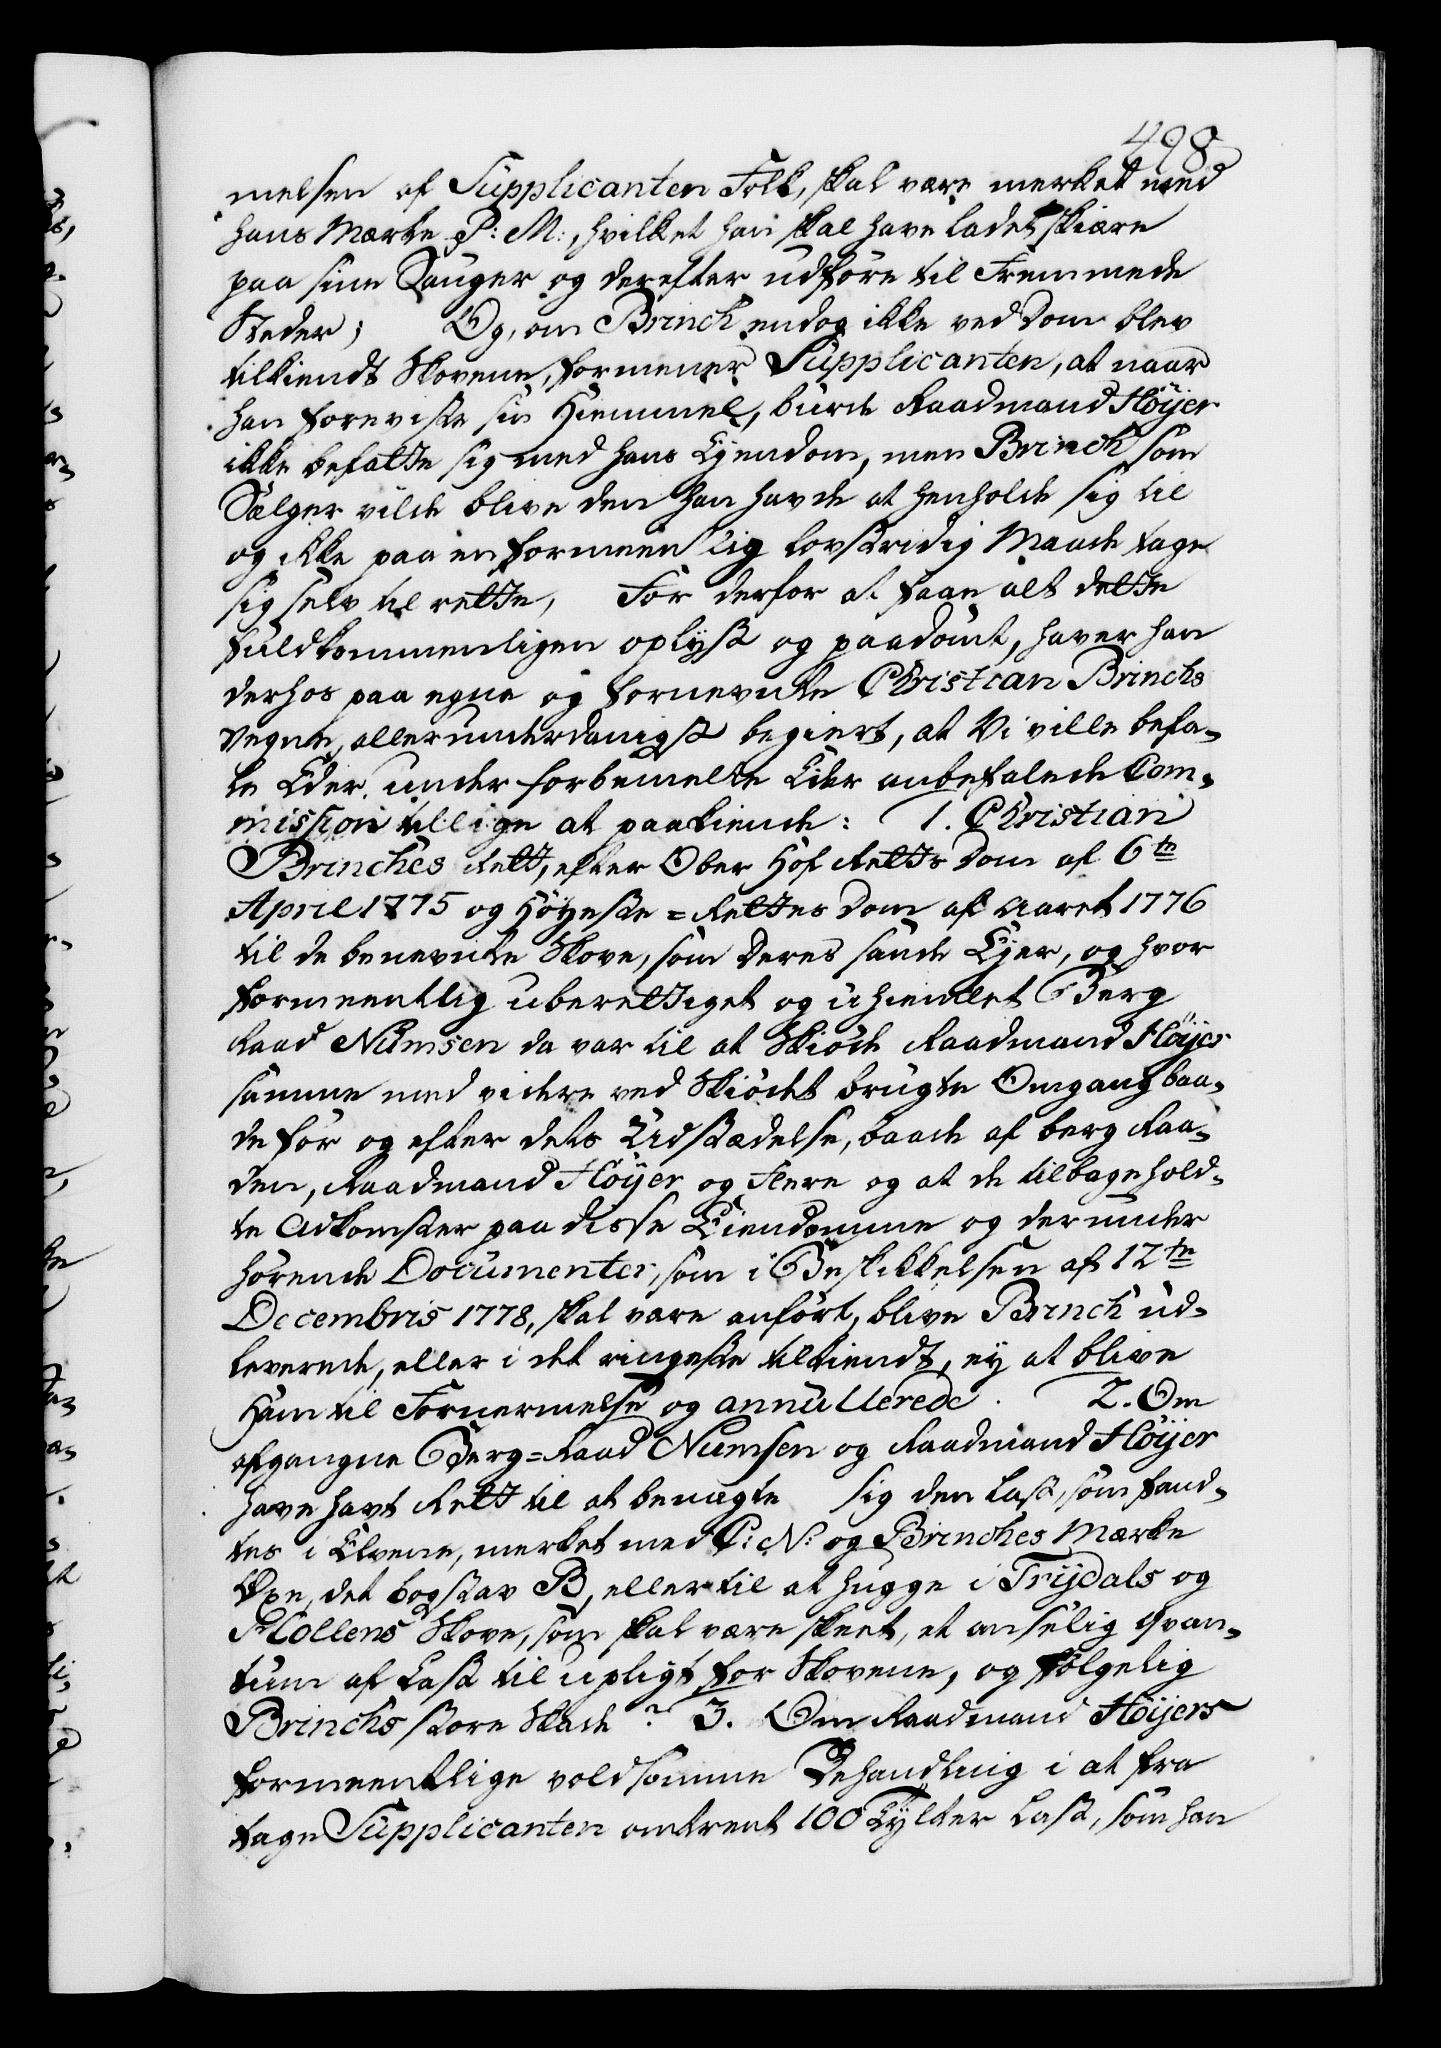 498
melsen af Supplicanten Folk, skal være merket med
hans Mærke P: M:, hvilket han skal have ladet skiære
paa sine Sauger og derefter udføre til Fremmede
Steder; Og, om Brinch endog ikke ved Dom blev
tilkiendt Skovene, formener Supplicanten, at naar
han foreviste sin Hiemmel, burde Raadmand Höijer
ikke befatte sig med hans Ejendom, men Brinch som
Sælger vilde blive den han havde at henholde sig til
og ikke paa en formeentlig lovstridig Maade tage
sig selv til rette, For derfor at faae alt dette
fuldkommenligen oplyst og paadömt, haver han
derhos paa egne og fornevnte Christian Brinchs
Vegne, allerunderdanigst begiert, at Vi ville befa-
le Eder under forbemelte Eder anbefalede Com-
mission tillige at paakiende: 1. Christian
Brinches Rett, efter Ober Hof Retts Dom af 6te
April 1775 og Höyeste=Rettes Dom af Aaret 1776
til de benevnte Skove, som deres sande Ejer, og hvor
formeentlig uberettiget og uhiemlet Berg
Raad Numsen da var til at Skiöde Raadmand Höijer
samme med videre ved Skiödet brugte Omgang baa-
de för og efter dets Udstædelse, baade af berg Raa-
den, Raadmand Höijer og Flere og at de tilbagehold-
te Adkomster paa disse Eiendomme og derunder
hörende Documenter, som i Beskikkelsen af 12te
Decembris 1778, skal være anfört, blive Brinch ud-
leverede, eller i det ringeste tilkiendt, ey at blive
Ham til Fornermelse og annullerede. 2. Om
afgangne Berg=Raad Numsen og Raadmand Höijer
have havt Rett til at benægte sig den Last, som fand-
tes i Elvene, merket med P: N: og Brinches Mærke
Öxe, det bogstav B, eller til at hugge i Trijdals og
Mollens Skove, som skal være skeet, et anselig qvan-
tum af Last til upligt for Skovene, og fölgelig
Brinchs store Skade? 3. Om Raadmand Höijers
formeentlige voldsomme Behandling i at fra
tage Supplicanten omtrent 100 Tylter Last, som han